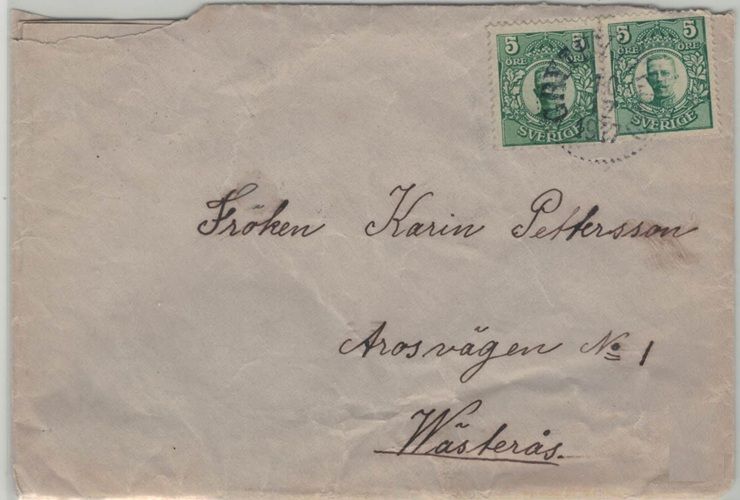 5 5
ÖRE ÖRE
SVERIGE
5 5
ÖRE ÖRE
SVERIGE
Fröken Karin Pettersson
Arosvägen No 1
Wästerås.